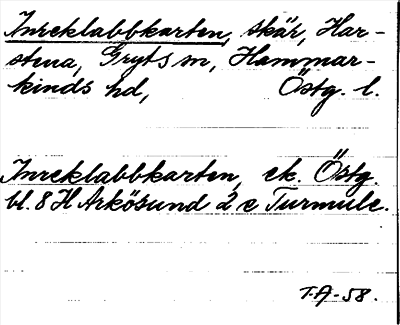 Inreklabbkarten, skär, Har-
stena, Gryts sn, Hammar-
kinds hd, Östg. l.
Inreklabbkarten, ek. Östg.
bl. 8 H Arkösund 2 c Turmulc.
T.A-58.